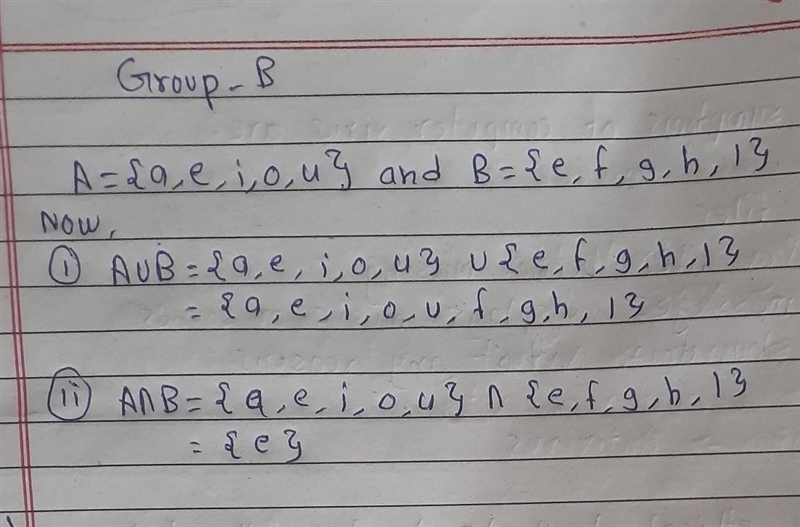 Group-B
A={a,e,i,o,u} and B={e,f,g,h,l}
Now,
(i) A∪B={a,e,i,o,u} ∪ {e,f,g,h,l}
={a,e,i,o,u,f,g,h,l}
(ii) A∩B={a,e,i,o,u} ∩ {e,f,g,h,l}
={e}